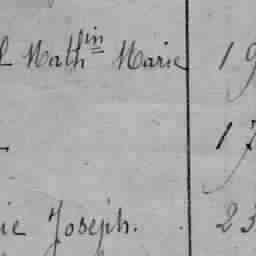 l Math^in Marie 19
17
ie Joseph. 23